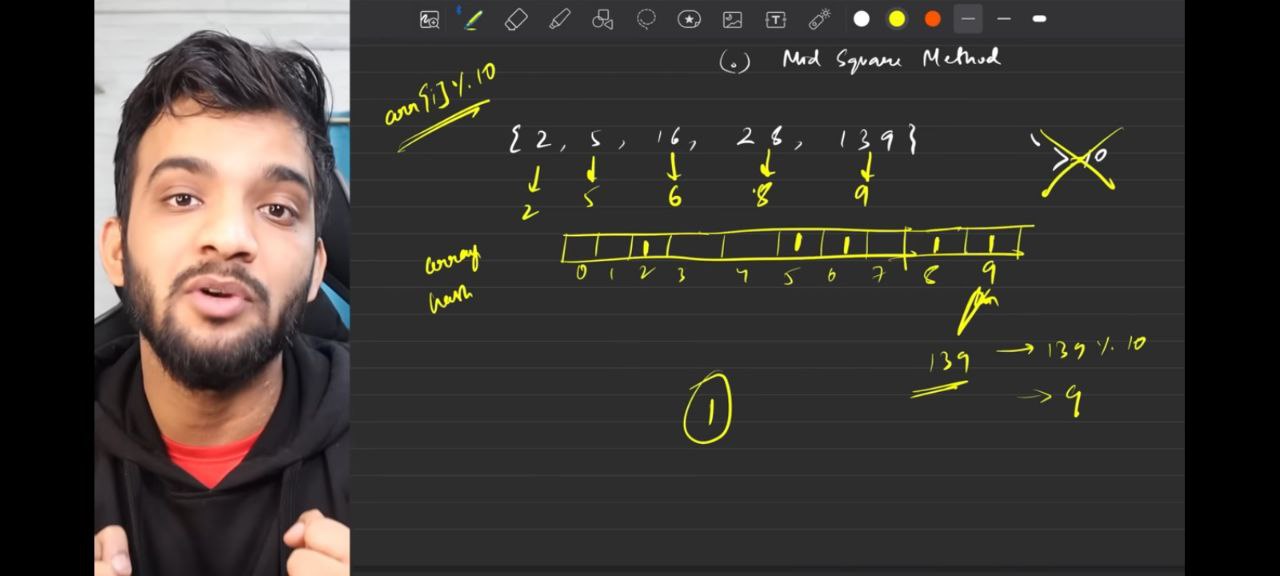 (.) Mid Square Method
arr[i] % 10
{ 2, 5, 16, 28, 139 }
2 5 6 8 9
>10
array
1 1 1 1 1
0 1 2 3 4 5 6 7 8 9
hash
139 → 139 % 10
→ 9
1